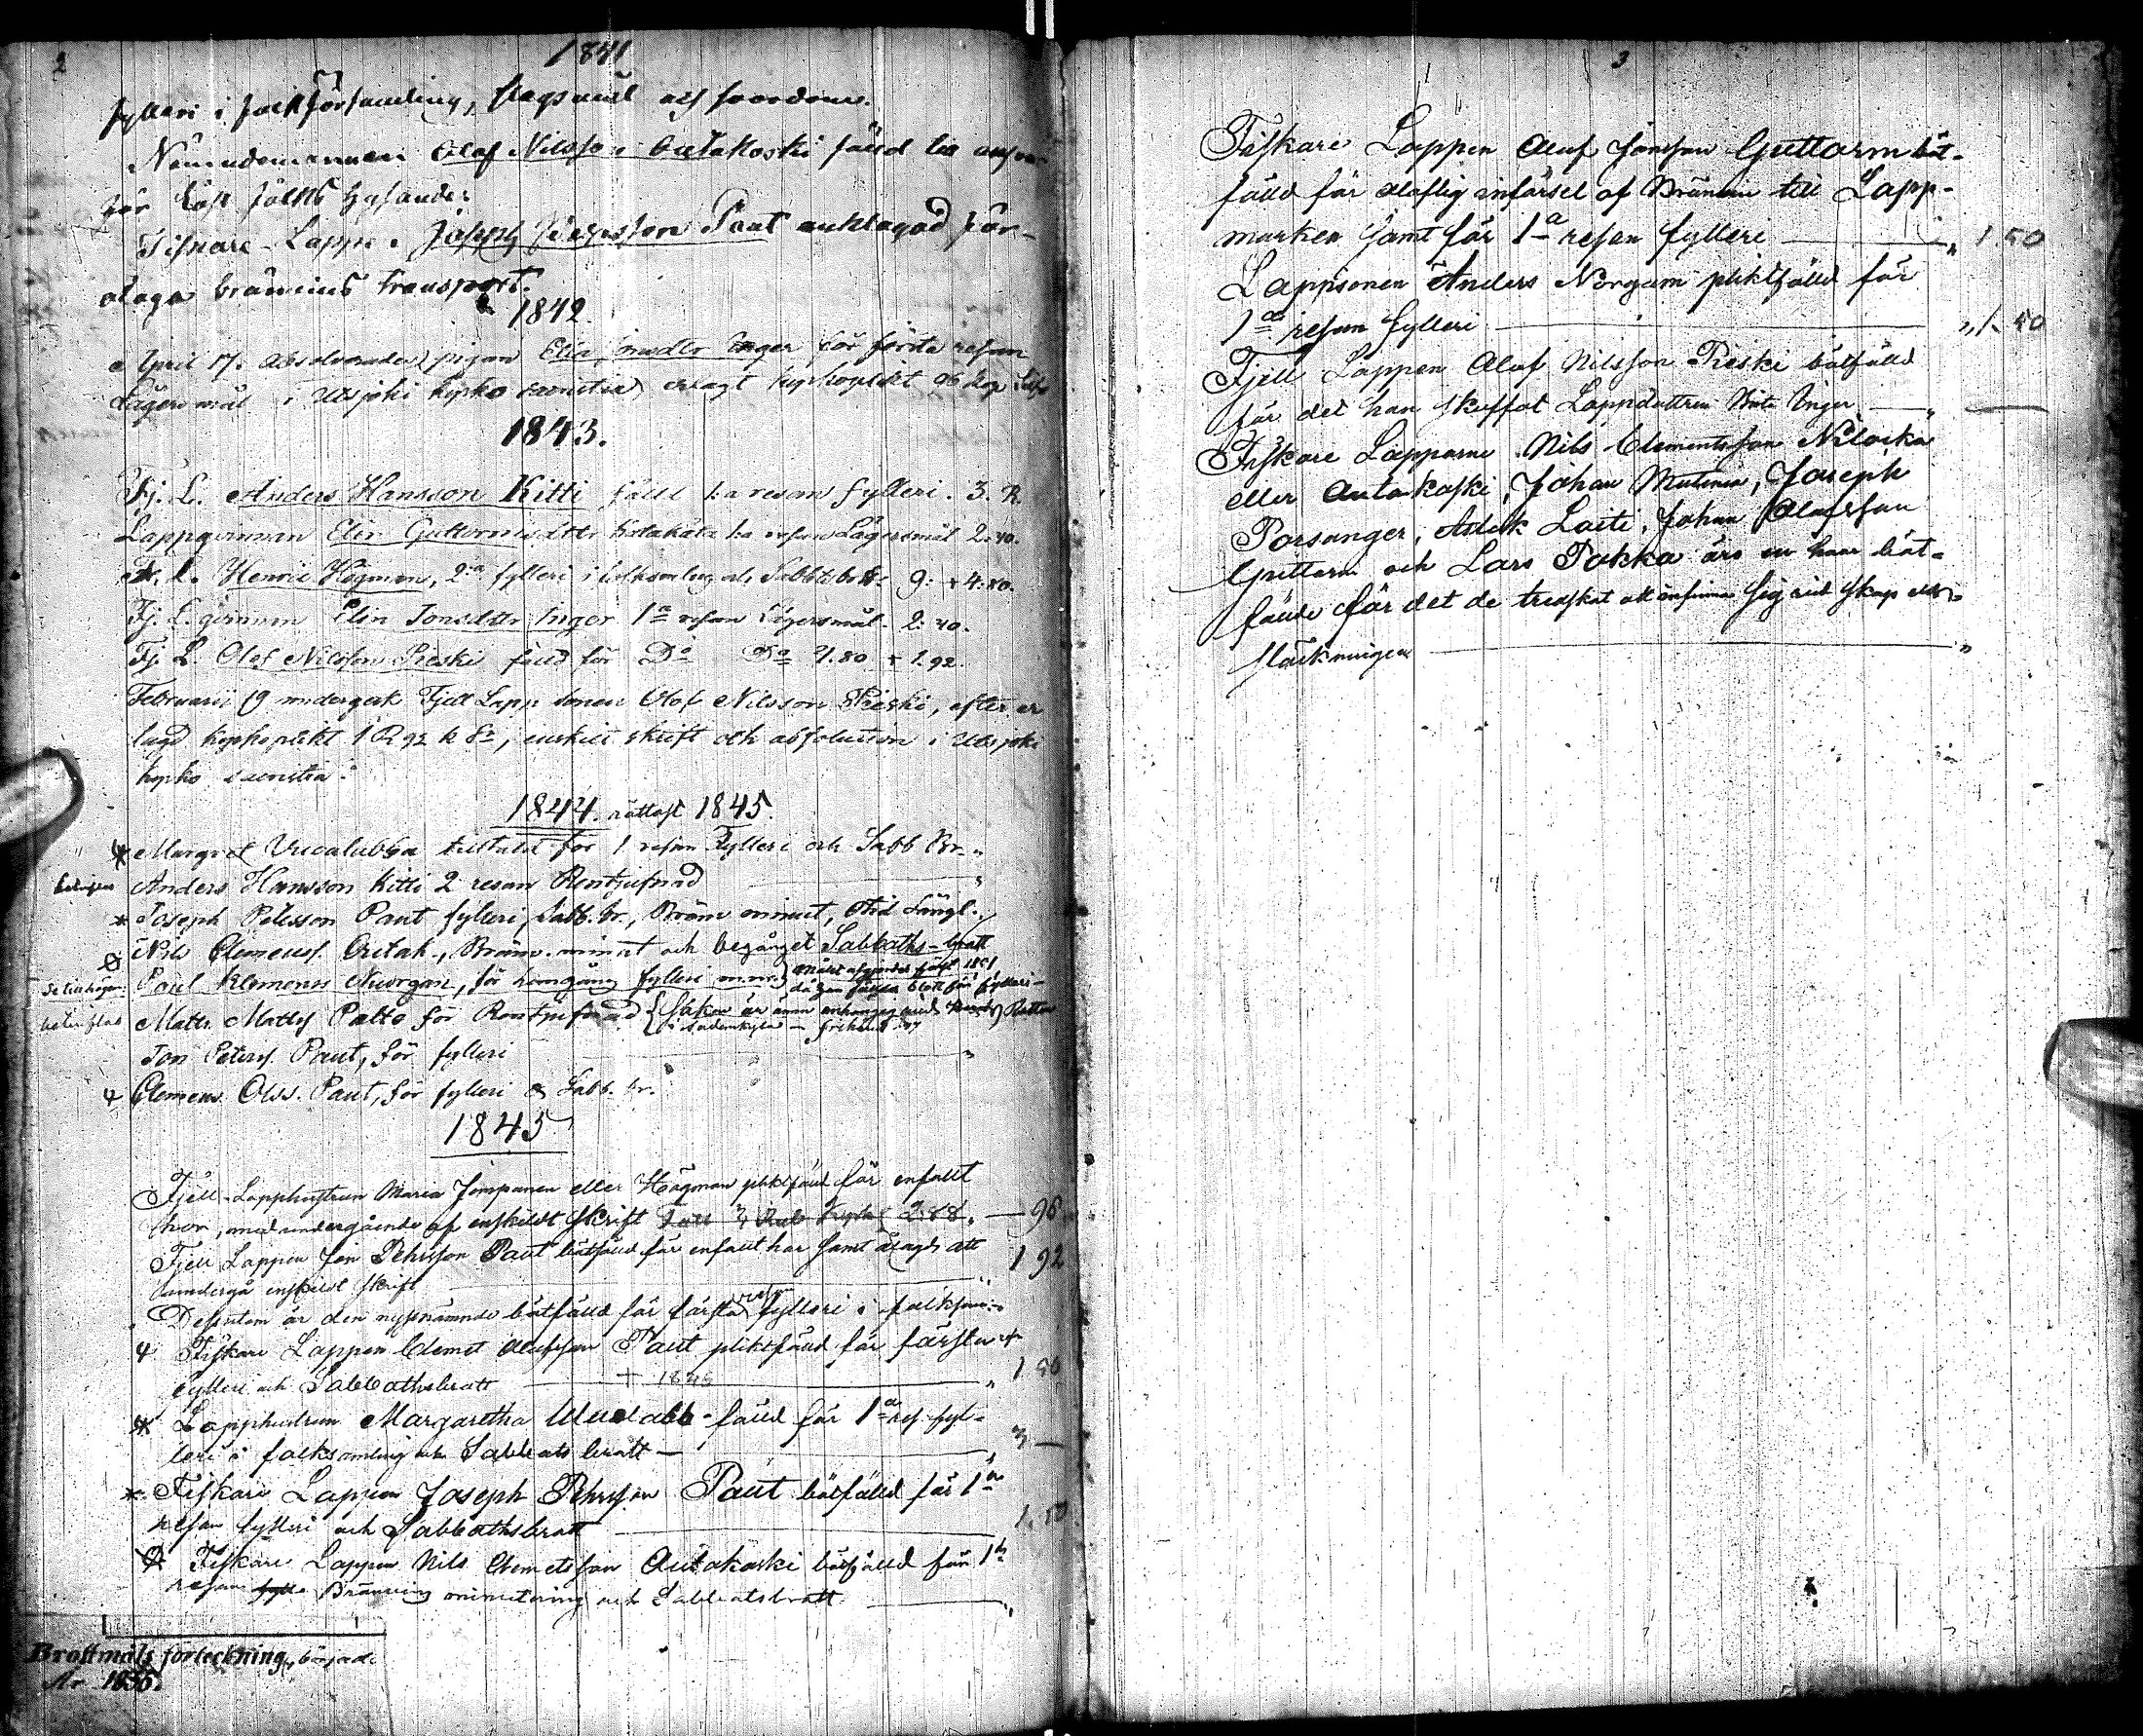 2
1841
fylleri i folkförsamling, slagsmål och svordom.
Nämndemannen Olof Nilsson Autakoski fälld till ansvar
för löst folks hysande:
Fiskare-Lappen Joseph Persson Paut anklagad för
olaga bränvins transport.
1842.
April 17. absolverades pigan Elin Inger för första resan
Lägersmål i Utsjoki kyrko sacristia erlagt kyrkoplikt 96 kop. Silfv
1843.
Fj. L. Anders Hansson Kitti fälld 1:a resan fylleri. 3. R.
Lappqvinnan Elin Guttormsdtr 1:a resan Lägersmål 2.40.
L. Henric Högman, 2:a fylleri i folksamling och Sabb.br. 9: + 4:80.
Fj. L. qvinnan Elin Jonsdtter Inger 1a resan Lägersmål. 2.40.
Fj. L. Olof Nilsson Pieski fälld för Do Do 4.80 + 1.92.
Februarii 19 undergick Fjell Lapp sonen Olof Nilsson Pieski, efter er
lagd kyrkoplikt 1 R 92 k Sr, enskilt skrift och absolution i Utsjoki
kyrko sacristia.
1844. rättast 1845.
* Margret Vuolabba tilltalad för 1 resan Fylleri och Sabb Br. "
Anders Hansson Kitti 2 resan Rentjufnad "
* Joseph Pettersson Paut fylleri, Sabb.br., Bränv. minut,
Nils Clemenss. Autak., Bränv. minut och begånget Sabbaths-brott
Paul Klemenss Nuorgam, för hemgång fylleri m.m.
Matts Mattss Palto för Rentjufnad {Saken är ännu anhängig vid Rätten
i Sodankylä
Jon Peterss. Paut, för fylleri "
Clemens Olss. Paut, för fylleri & Sabb. br.
1845
Fjell-Lapphustrun Maria Jompanen eller Högman pliktfälld för enfallt
hor, med undergående af enskildt skrift 2.88. — 96
Fjell Lappen Jon Pehrsson Paut bötfälld för enfallt hor samt ålagd att 1 92
undergå enskildt skrift "
Dessutom är den nysnämnde bötfälld för första resan fylleri i folksam:
Fiskare Lappen Clemet Olofsson Paut pliktfälld för första
fylleri och Sabbathsbrott + 1846 " 1.50
* Lapphustrun Margaretha Vuolabb- fälld för 1a res. fyl-
leri i folksamling och Sabbats brott — " 3 —
* Fiskare Lappen Joseph Pehrsson Paut bötfälld för 1a
resan fylleri och Sabbathsbrott 1.50
Fiskare Lappen Nils Clemetsson Autakoski bötfälld för 1a
resan fylle Bränvins minutering och Sabbatsbrott "
Brottmåls förteckning, börjad
År 1836.
3
Fiskare Lappen Oluf Jonsson Guttorm böt-
fälld för olaflig införsel af Bränvin till Lapp-
marken samt för 1a resan fylleri " 1.50
Lappsonen Anders Norgam pliktfälld för
1a resan fylleri " 1.50
Fjell Lappen Oluf Nilsson Pieski bötfälld
för det han skuffat Lappdottren Inger "
Fiskare Lapparne Nils Clementsson
eller Autakoski, Johan Mutenia, Joseph
Porsanger, Aslak Laiti, Johan Olofsson
Guttorm och Lars Pokka äro en hvar böt-
fällde för det de tredskat att infinna sig vid skogs elds
släckningen "